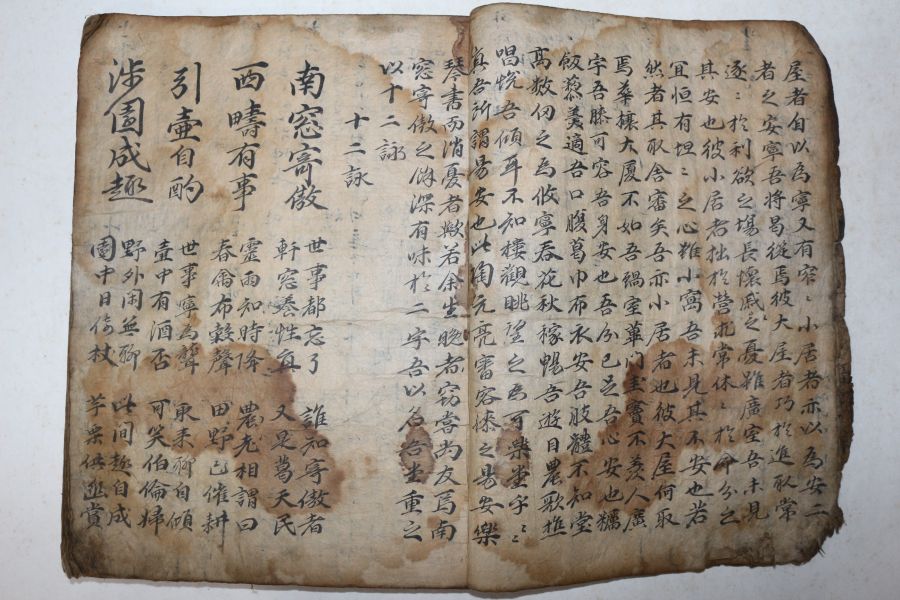 屋者自以為寧又有窄〻小居者亦以為安二
者之安寧吾將曷從焉彼大屋者巧於進取常
逐〻於利欲之場長懷戚〻之憂雖廣室吾未見
其安也彼小居者拙於營求常休〻於分之
宜恒有坦〻之心雖小寓吾未見其不安也若
然者其取舍審矣吾亦小居者也彼大屋何取
焉華榱大厦不如吾蝸室蓽門圭竇不羨人廣
宇吾膝可容吾身安也吾分已足吾心安也糲
飯藜羹適吾口腹葛巾布衣安吾肢體不知堂
高數仞之為攸寧春花秋稼暢吾遊目農歌樵
唱悅吾傾耳不知樓觀眺望之為可樂堂宇〻
真吾所謂易安也此陶元亮審容膝之易安樂
琴書而消憂者歟若余生晚者竊嘗尚友焉南
窓寄傲之餘深有味於二字吾以名吾堂重之
以十二詠
十二詠
南窓寄傲 世事都忘了 誰知寄傲者
軒窓養性真 又是葛天民
西疇有事 靈雨知時降 農老相謂曰
春禽布穀聲 田野已催耕
引壺自酌 世事寧為聾 更來聊自傾
壺中有酒否 可笑伯倫婦
涉園成趣 野外閑無聊 此間趣自成
園中日倚杖 芋栗供進賞